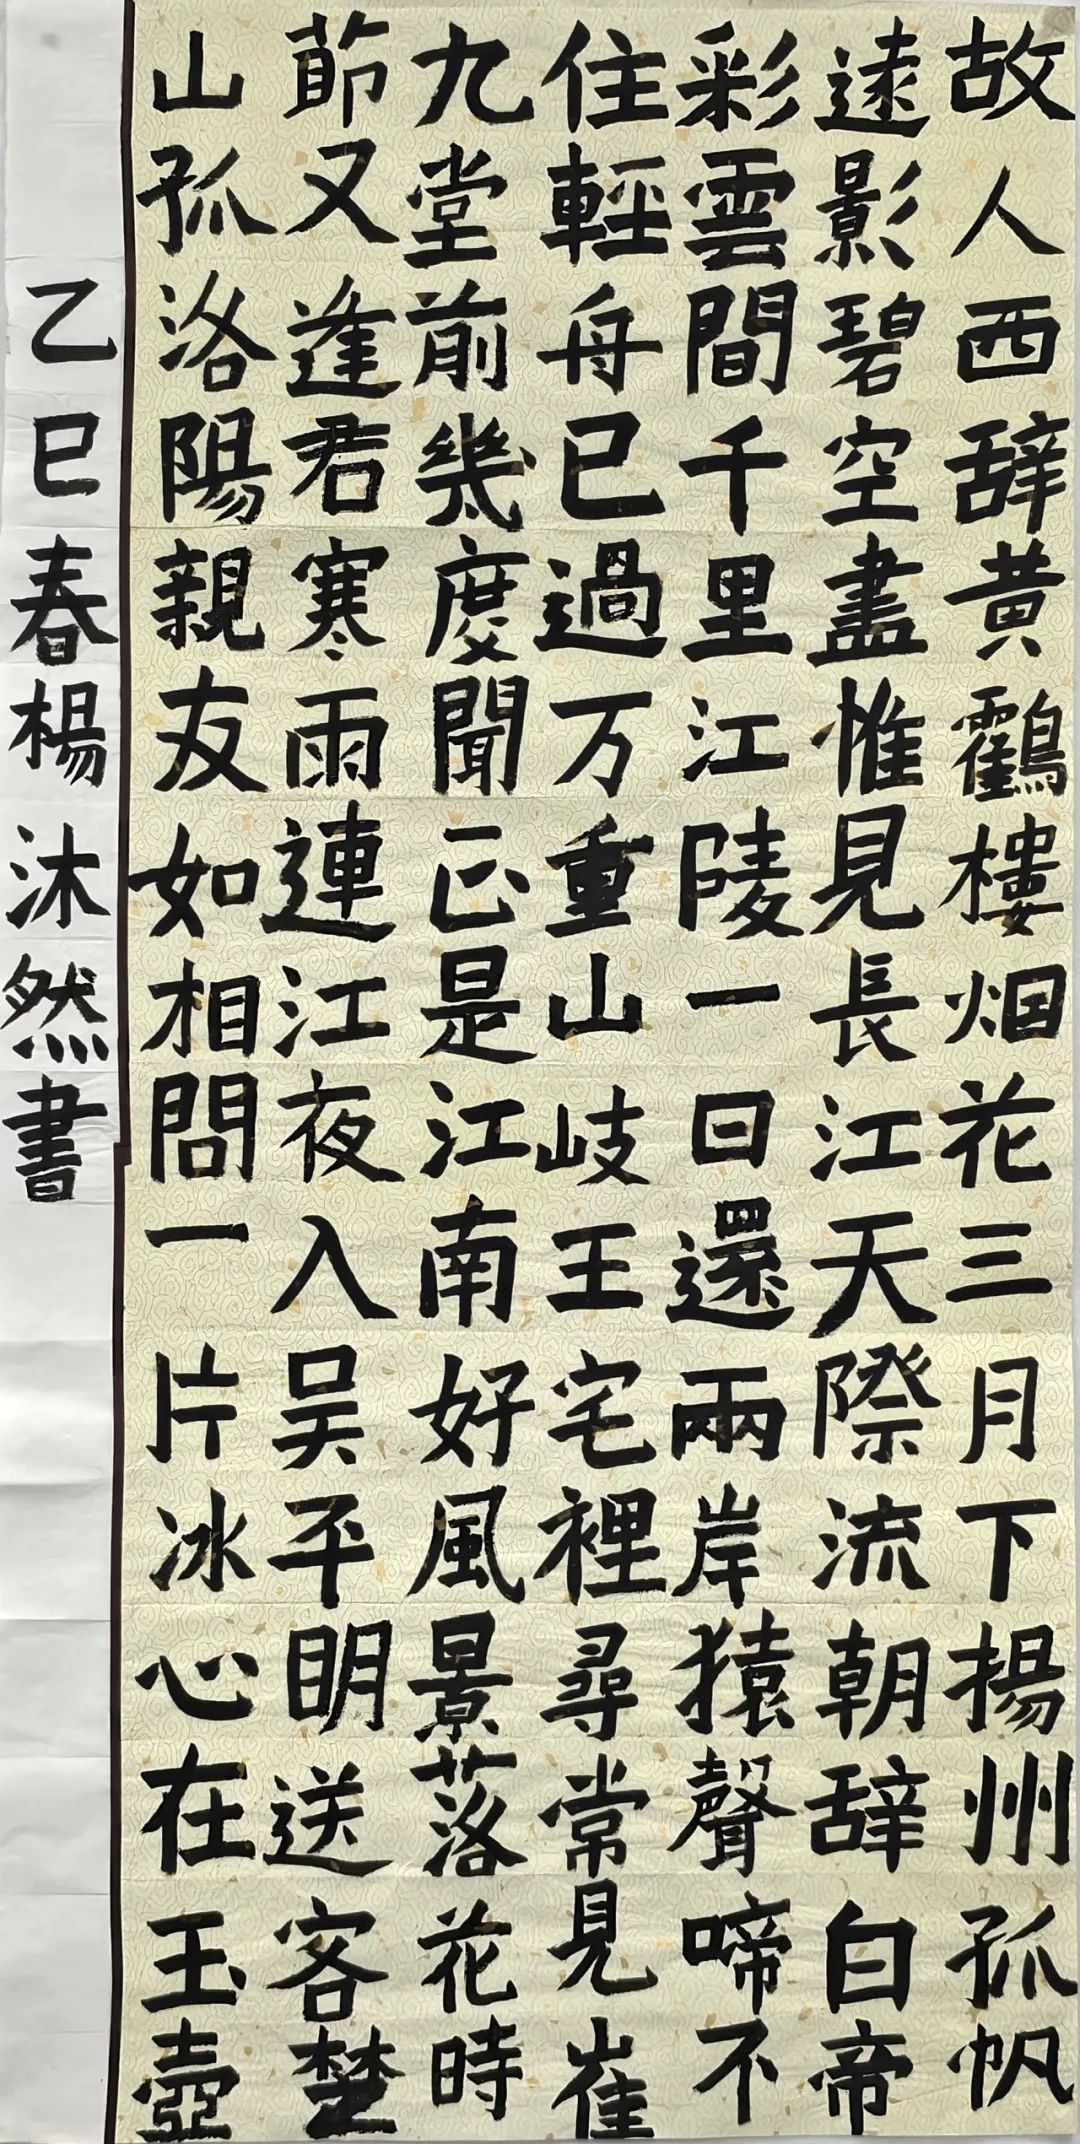 故人西辞黃鶴樓烟花三月下揚州孤帆
遠影碧空盡惟見長江天際流朝辞白帝
彩雲間千里江陵一日還兩岸猿聲啼不
住輕舟已過万重山岐王宅裡尋常見崔
九堂前幾度聞正是江南好風景落花時
節又逢君寒雨連江夜入吴平明送客楚
山孤洛陽親友如相問一片冰心在玉壺
乙巳春楊沐然書